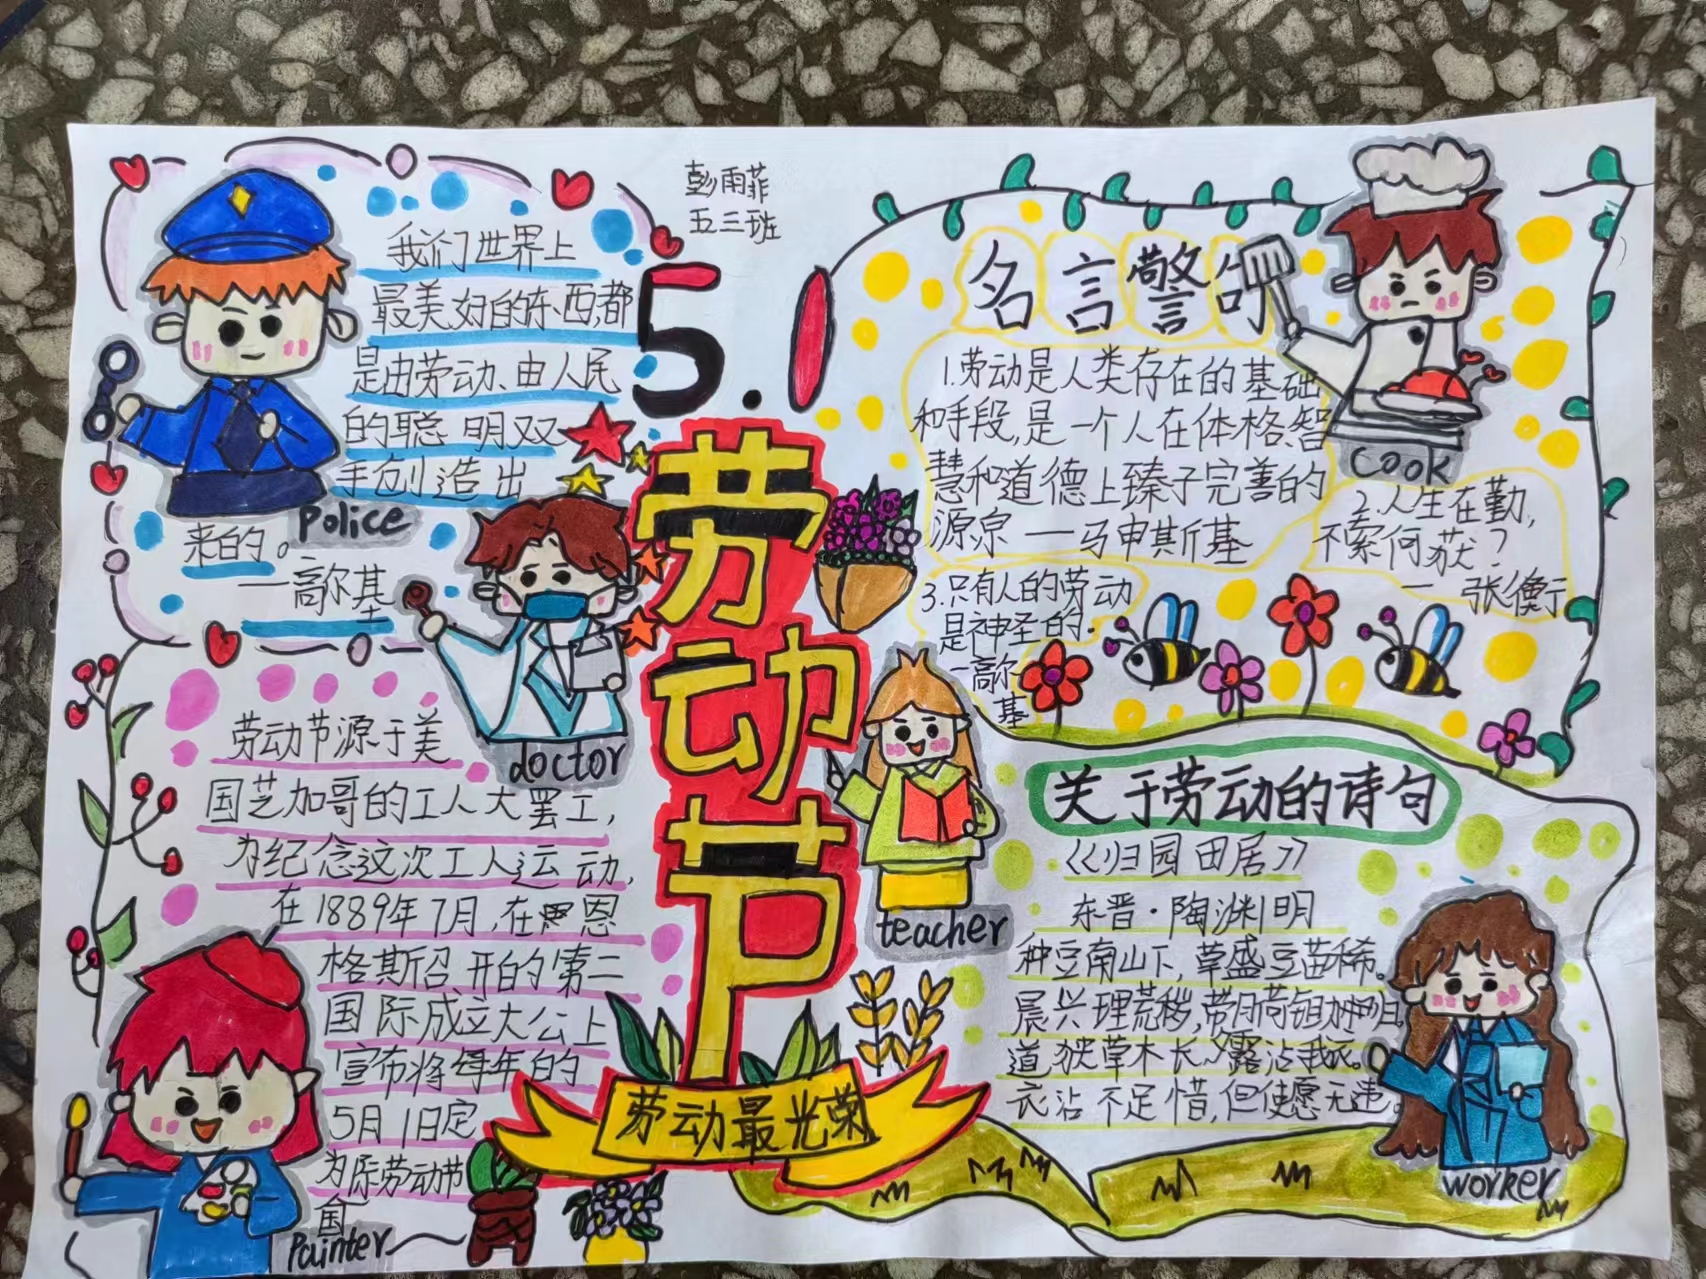 彭雨菲
五三班
5.1
劳动节
劳动最光荣
我们世界上
最美好的东西,都
是由劳动、由人民
的聪明双
手创造出
来的。
一高尔基
police
doctor
劳动节源于美
国芝加哥的工人大罢工,
为纪念这次工人运动,
在1889年7月,在恩
格斯召开的第二
国际成立大公上
宣布将每年的
5月1日定
为际劳动节
国
Painter
名言警句
1.劳动是人类存在的基础
和手段,是一个人在体格.智
慧和道德上臻于完善的
源泉 一马申斯基
cook
2.人生在勤,
不索何获?
一张衡
3.只有人的劳动
是神圣的.
一高尔
基
teacher
关于劳动的诗句
《归园田居》
东晋·陶渊明
种豆南山下,草盛豆苗稀。
晨兴理荒秽,带月荷锄
道狭草木长,夕露沾我
衣沾不足惜,但使愿无违。
worker